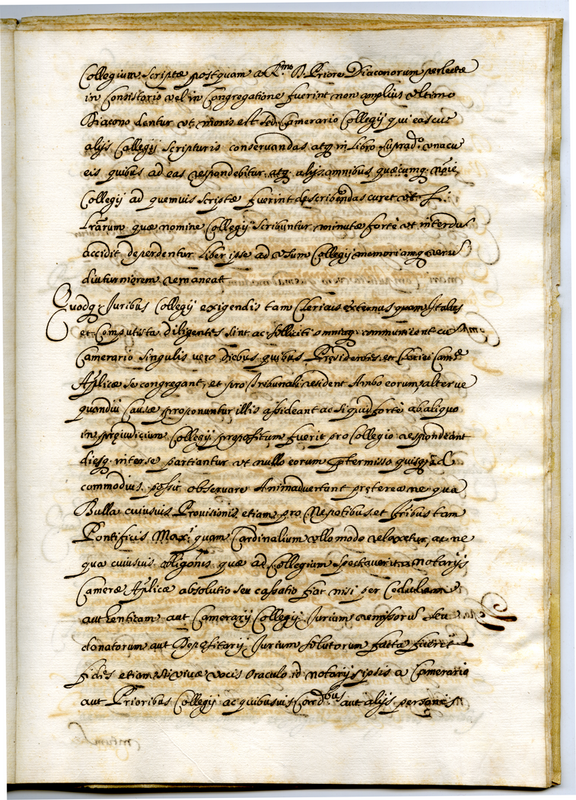 Collegium scriptæ postquam a R.mo D. Priore Diaconorum perlectæ
in Consistorio vel in Congregatione fuerint non amplius ultimo
Diacono dentur ut moris est sed Camerario Collegij qui eas cum
alijs Collegij scripturis conservandas atq; in libro
eis quibus ad eas respondebitur atq; alijs omnibus quæcumq;
Collegij ad quemuis scriptæ fuerint describendas curet ut si
lrarum quæ nomine Collegij scribuntur minutæ forte ut interdum
accidit deperdentur liber iste ad usum Collegij memoriamq; rerum
diuturniorem permaneat
Quodq; Iuribus Collegij exigendis tam Clericus externus quam Italus
et Computista diligentes sint ac solliciti omniaq; communicent cum
Camerario singulis vero diebus quibus Presidentes et Clerici Cam.
Aplicæ se congregant, et pro Tribunali resident Ambo eorum alterve
quandiu causæ proponuntur illis assideant ac si quid forte ab aliquo
in preiudicium Collegij propositum fuerit pro Collegio respondeant
diesq; inter se partiantur ut nullo eorum pretermisso quisq;
commodius possit observare Animadvertant pretereà ne qua
Bulla cuiusuis Provisionis etiam pro Nepotibus et fratribus tam
Pontificis Maxi quam Cardinalium ullo modo relaxetur, at ne
qua cuiusuis obligonis quæ ad Collegium spectaverit a notarijs
Cameræ Aplicæ absolutio seu cassatio fiat nisi per Cedulam
aut Camerarij Collegij Iurium
donatorum aut Depositarij Iurium solutorum factæ fuerit
fides etiam vivæ vocis oraculo notarijs ipsis a Camerario
aut Prioribus Collegij ac quibusuis Cardbus aut alijs personis